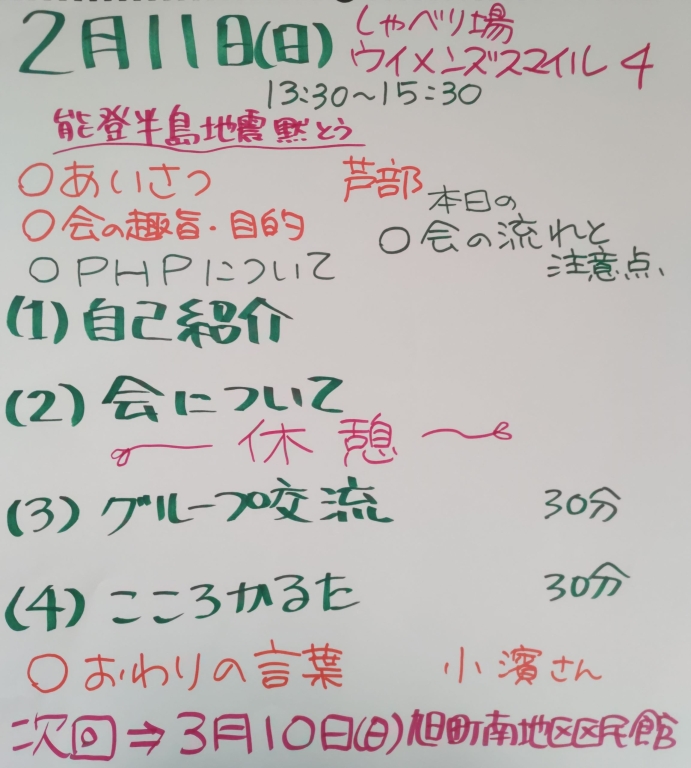 2月11日(日)
しゃべり場
ウイメンズスマイル 4
13:30〜15:30
能登半島地震黙とう
○あいさつ 芦部
○会の趣旨・目的
本日の
○会の流れと
注意点、
○PHPについて
(1)自己紹介
(2)会について
休憩
(3)グループ交流 30分
(4)こころかるた 30分
○おわりの言葉 小濱さん
次回⇒3月10日(日)旭町南地区区民館